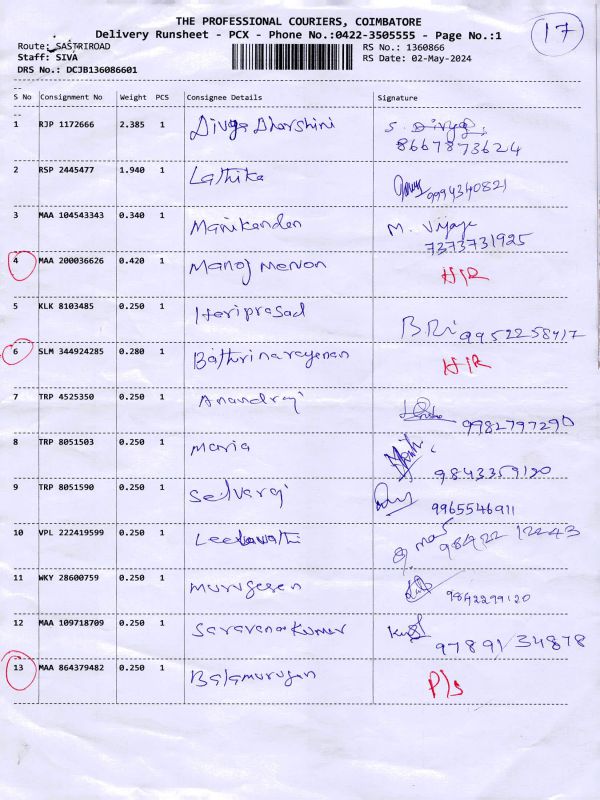 THE PROFESSIONAL COURIERS, COIMBATORE
Delivery Runsheet - PCX - Phone No.:0422-3505555 - Page No.:1
17
Route: SASTRIROAD RS No.: 1360866
Staff: SIVA RS Date: 02-May-2024
DRS No.: DCJB136086601
S No Consignment No Weight PCS Consignee Details Signature
1 RJP 1172666 2.385 1 Divya Dharshini S. Divya
8667873624
2 RSP 2445477 1.940 1 Lathika 9994340821
3 MAA 104543343 0.340 1 Manikanden M. Vijaye
7373731925
4 MAA 200036626 0.420 1 Manoj Menon HIR
5 KLK 8103485 0.250 1 Hariprasad 9952258417
6 SLM 344924285 0.280 1 Bathrinarayanan HIR
7 TRP 4525350 0.250 1 Anandraj 9982797290
8 TRP 8051503 0.250 1 Maria 9843359120
9 TRP 8051590 0.250 1 Selvaraj 9965546911
10 VPL 222419599 0.250 1 Leelavathi 98422 12243
11 WKY 28600759 0.250 1 Murugesen 9842299120
12 MAA 109718709 0.250 1 Saravanakumar 97891 34878
13 MAA 864379482 0.250 1 Balamurugan P/s